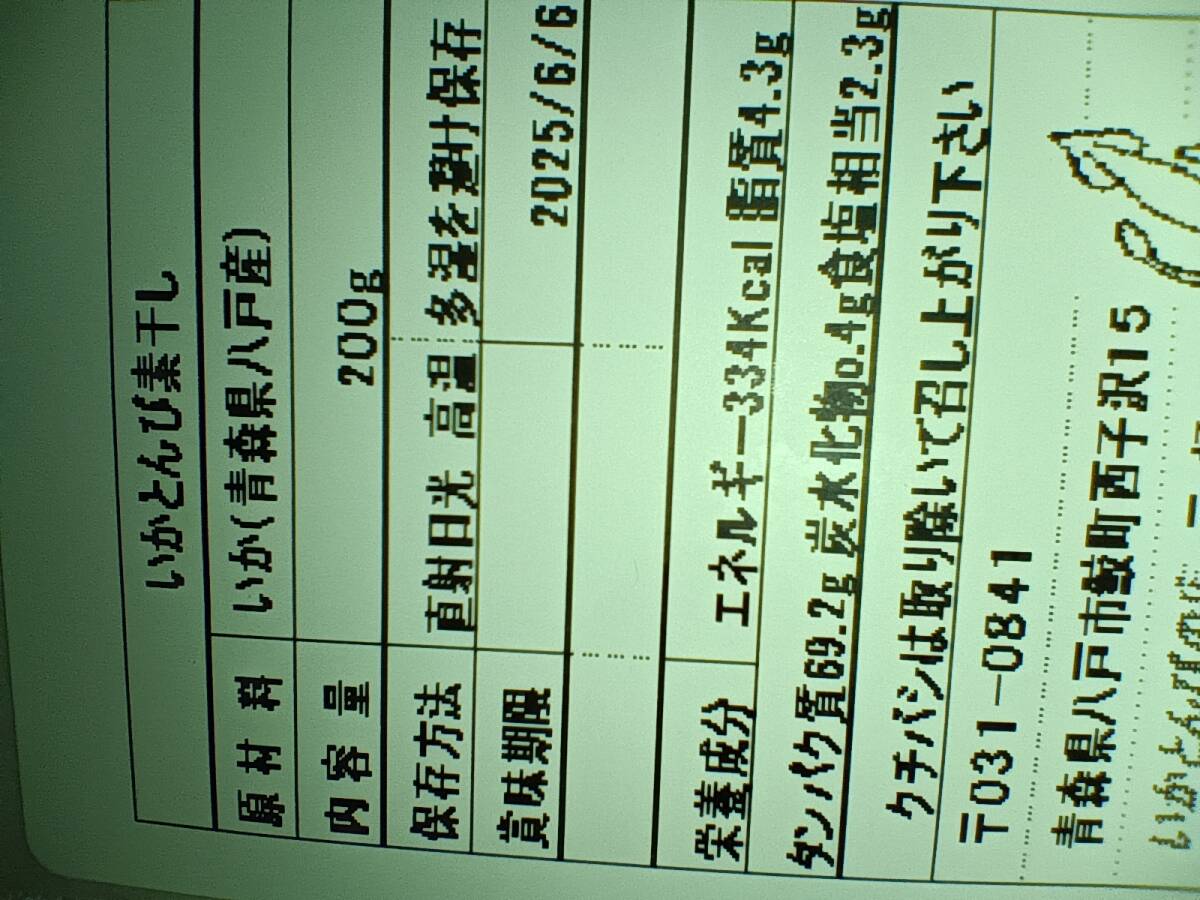 いかとんび素干し
原材料 いか(青森県八戸産)
内容量 200g
保存方法 直射日光 高温 多湿を避け保存
賞味期限 2025/6/6
栄養成分 エネルギー334Kcal 脂質4.3g
タンパク質69.2g 炭水化物0.4g食塩相当2.3g
クチバシは取り除いて召し上がり下さい
〒031-0841
青森県八戸市鮫町西子沢15